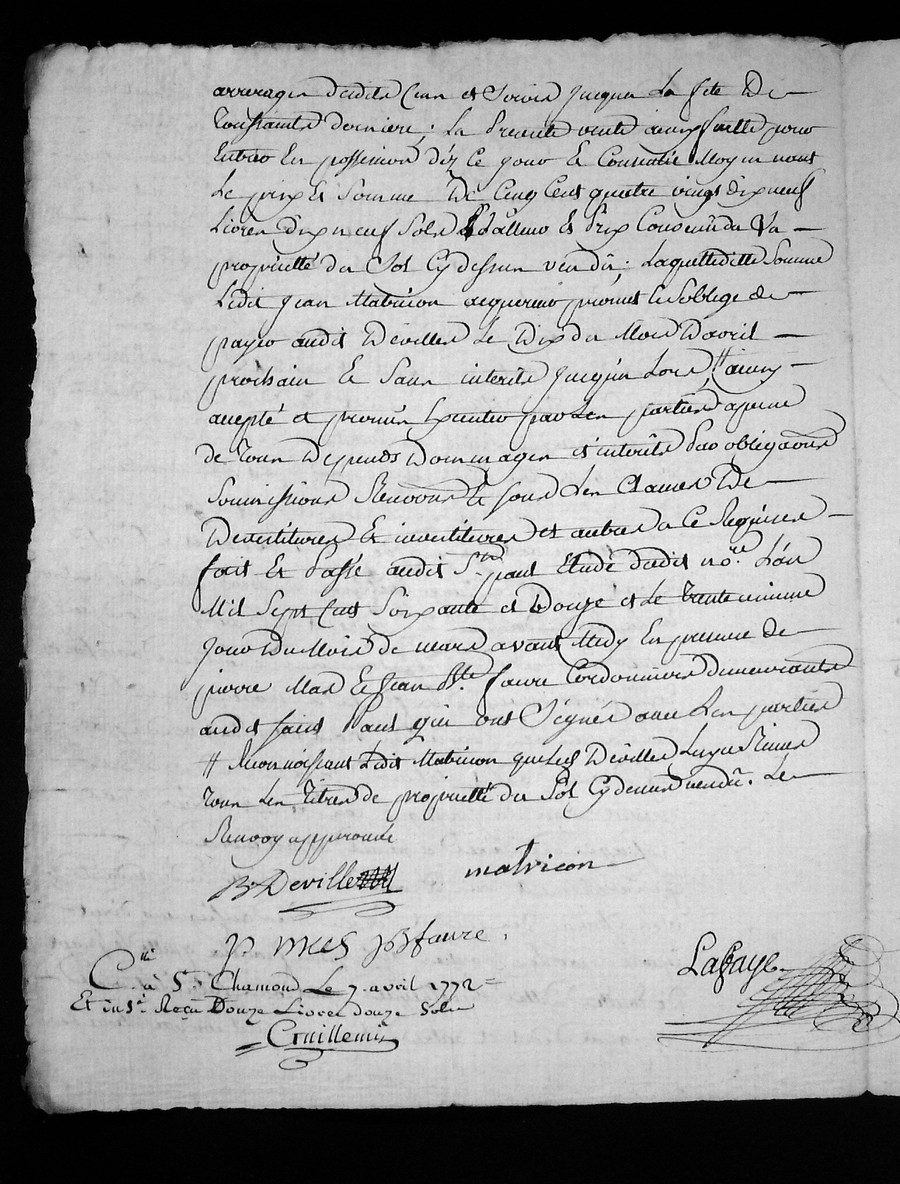 arrerages desdits Cens et Servis jusques La fete De
Toussaints derniere; La Presente vente aussy faitte pour
Entrer En possession déz Ce jour Et Ensuitte Moyennant
Le prix Et Somme De Cinq Cent quatre vingt dix neuf
Livres dix neuf Sols Valleur Et Prix Convenu de La
proprietté du Sol Cydessus vendû; Laquelle ditte Somme
Ledit Jean Matricon acquereur promet Et Soblige de
payer audit Devilles Le Dix du Mois Davril
prochain Et Sans interets jusques Lors # ainsy
accepté et promis Executer par Les parties a peine
de Tous Depends Dommages et interets Par obligations
Soumissions Renvons Et sous Les Clauses De
Devestitures Et investitures et autres a Ce Requises
fait Et Passé audit St paul Etude dudit nore. L'an
Mil Sept Cent Soixante et Douze et Le trente unieme
Jour Du Mois de mars avant Midy En presence de
pierre Mas Et Jean Bte. faure Cordonniers demeurants
audit saint Paul qui ont Signés avec Les parties
# Reconnoissant Ledit Matricon que Led Devilles Luy a Remis
Tous Les Titres de proprietté du Sol Cydessus vendû. Le
Renvoy approuvé
B Deville
matricon
p. mas JB faure.
Lafaye
Clle. à St. Chamond Le 7. avril 1772
Et ins.é Reçu Douze Livres douze Sols
Guillemin